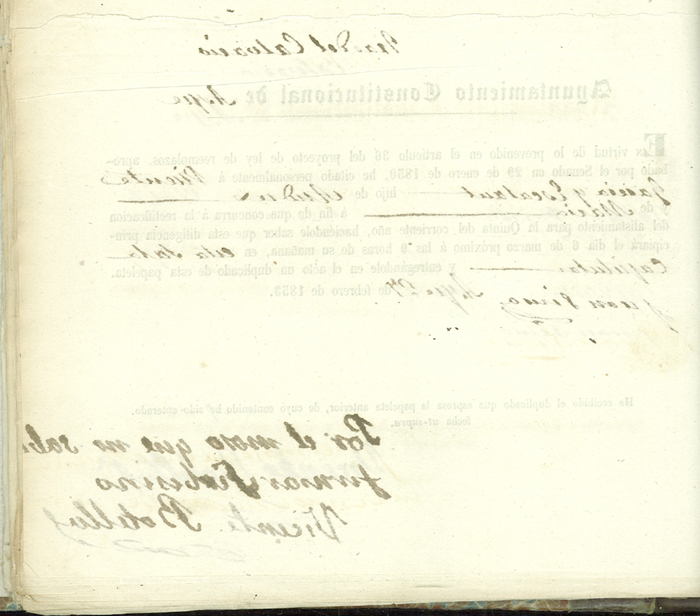 del Calvario
Ayuntamiento Constitucional de Aspe
En virtud de lo prevenido en el artículo 36 del proyecto de ley de reemplazos, apro-
bado por el Senado en 29 de enero de 1850, he citado personalmente á Vicente
García y Escolano hijo de Andres
y de María á fin de que concurra á la rectificacion
del alistamiento para la Quinta del corriente año, haciéndole saber que esta diligencia prin-
cipiará el dia 6 de marzo próximo á las 9 horas de su mañana, en esta Sala
Capitular y entregándole en el acto un duplicado de esta papeleta.
Aspe 27 de febrero de 1853.
Juan
He recibido el duplicado que espresa la papeleta anterior, de cuyo contenido he sido enterado.
fecha ut-supra.
Por el moso que no sabe
firmar su vesino
Vicente Botella